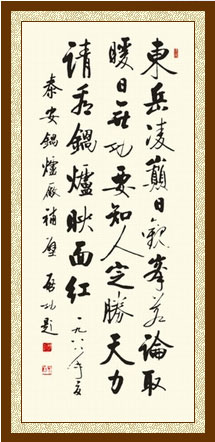 東岳凌巔日觀峯若論取
暖日無功要知人定勝天力
請看鍋爐映面紅 一九八八年夏
泰安鍋爐廠補壁 啟功題